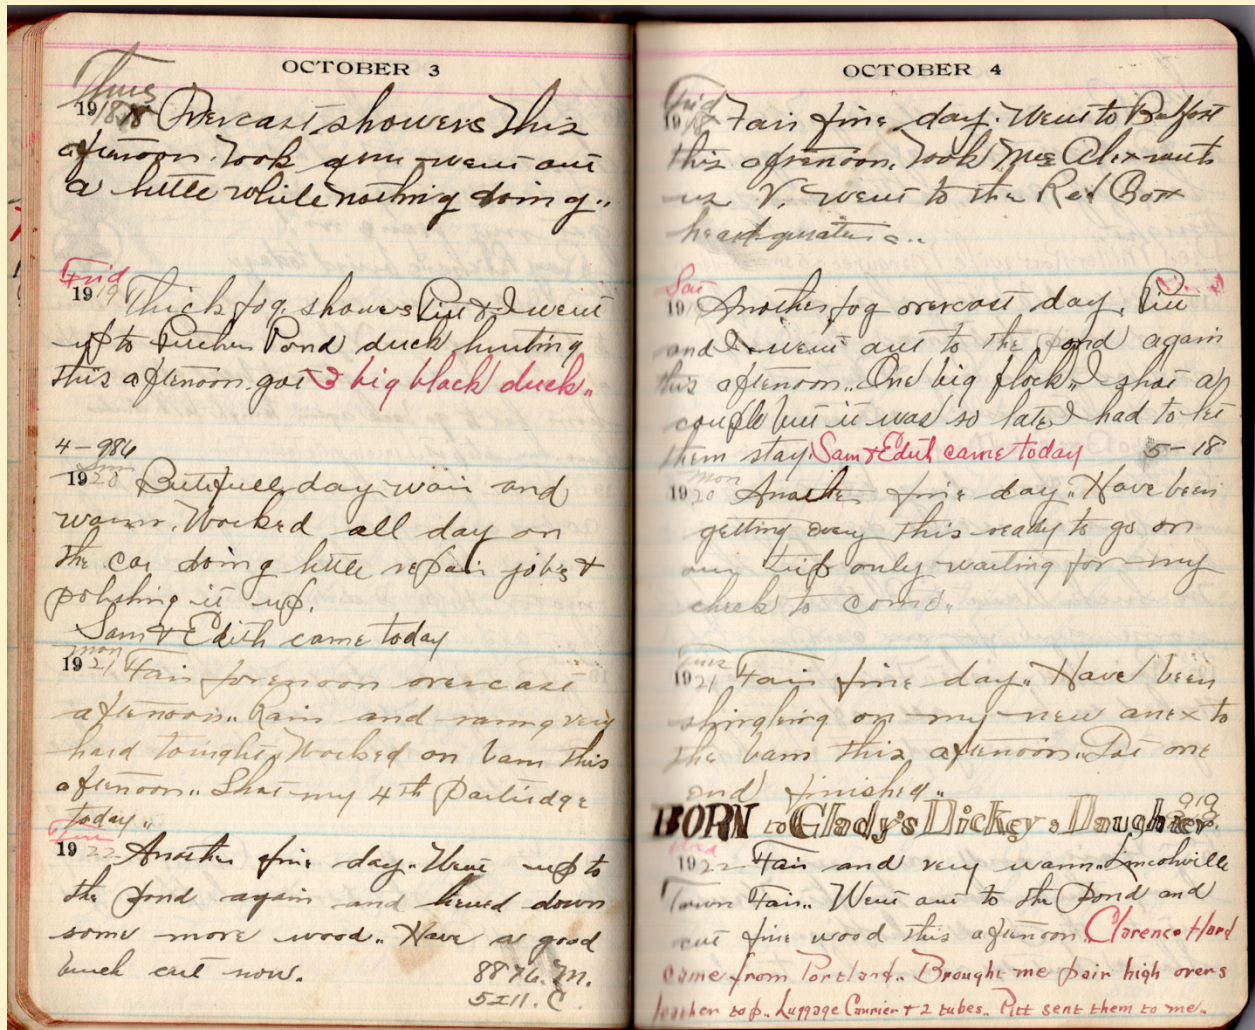 OCTOBER 3
Thurs
1918 Overcast showers this
afternoon. Took gun went out
a little while nothing doing..
Frid
1919 Thick fog, showers Pitt & I went
up to Pitcher Pond duck hunting
this afternoon. got 3 big black duck..
4-986
Sun
1920 Butifull day wain and
warm. Worked all day on
the car doing little repair jobs &
polishing it up.
Sam & Edith came today
mon
1921 Fair forenoon overcast
afternoon.. Rain and raing very
hard tonight. Worked on barn this
afternoon.. Shot my 4th Partridge
today..
1922 Another fine day.. Went up to
the pond again and hewed down
some more wood.. Have a good
buch cut now.
8876. M.
5211. C.
OCTOBER 4
Frid
1918 Fair fine day. Went to Belfast
this afternoon. Took Mrs Alex with
us V. went to the Red Cox
headquaters..
Sat
1919 Another fog overcast day. Pitt
and I went out to the pond again
this afternoon.. One big flock.. I shot a
couple but it was so late I had to let
them stay. Sam & Edith came today 5-18
mon
1920 Another fine day.. Have been
getting every this ready to go on
our trip only waiting for my
check to come..
Tues
1921 Fair fine day.. Have been
shingleing on my new anex to
the barn this afternoon.. Got one
end finished..
BORN to Glady's Dickey a Daughter
Wed
1922 Fair and very warm.. Lincolnville
Town Fair.. Went out to the Pond and
cut fine wood this afternoon.. Clarence Hard
came from Portland.. Brought me pair high overs
leather top. Luggage Carrier & 2 tubes.. Pitt sent them to me..